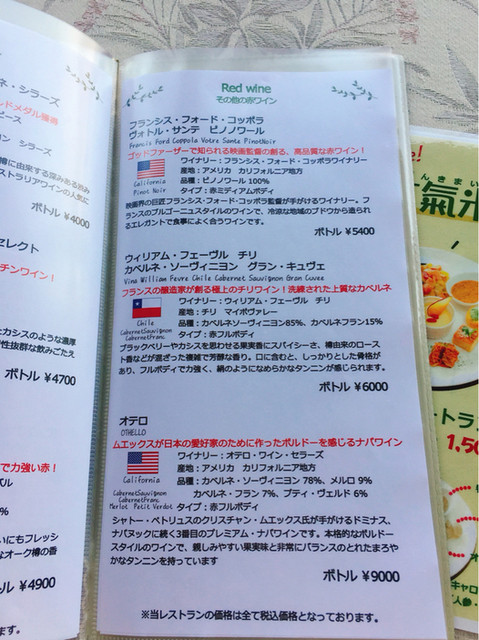 ネ・シラーズ
ルドメダル獲得
ピース
ン　シラーズ
樽に由来する深みある呑み
ストラリアワインの人気に
ボトル ¥4000
セレクト
チンワイン！
たカシスのような濃厚
性抜群な飲みごたえ
ボトル ¥4700
で力強い赤！
ドル
いにもフレッシ
なオーク樽の香
ボトル ¥4900
ます。
Red wine
その他の赤ワイン
フランシス・フォード・コッポラ
ヴォトル・サンテ　ピノノワール
Francis Ford Coppola Votre Sante PinotNoir
ゴッドファーザーで知られる映画監督の創る、高品質な赤ワイン！
ワイナリー：フランシス・フォード・コッポラワイナリー
産地：アメリカ　カリフォルニア地方
品種：ピノノワール 100%
タイプ：赤ミディアムボディ
California
Pinot Noir
映画界の巨匠フランシス・フォード・コッポラ監督が手がけるワイナリー。フ
ランスのブルゴーニュスタイルのワインで、冷涼な地域のブドウから造られ
るエレガントで食事によく合うワインです。
ボトル ¥5400
ウィリアム・フェーヴル　チリ
カベルネ・ソーヴィニヨン　グラン・キュヴェ
Vina William Fevre Chile Cabernet Sauvignon Gran Cuvee
フランスの醸造家が創る極上のチリワイン！洗練された上質なカベルネ
ワイナリー：ウィリアム・フェーヴル　チリ
産地：チリ　マイポヴァレー
品種：カベルネソーヴィニヨン85%、カベルネフラン15%
タイプ：赤フルボディ
Chile
CabernetSauvignon
CabernetFranc
ブラックベリーやカシスを思わせる果実香にスパイシーさ、樽由来のロース
ト香などが混ざった複雑で芳醇な香り。口に含むと、しっかりとした骨格が
あり、フルボディで力強く、絹のようになめらかなタンニンが感じられます。
ボトル ¥6000
オテロ
OTHELLO
ムエックスが日本の愛好家のために作ったボルドーを感じるナパワイン
ワイナリー：オテロ・ワイン・セラーズ
産地：アメリカ　カリフォルニア地方
品種：カベルネ・ソーヴィニヨン 78%、メルロ 9%
カベルネ・フラン 7%、プティ・ヴェルド 6%
タイプ：赤フルボディ
California
CabernetSauvignon
CabernetFranc
Merlot Petit Verdot
シャトー・ペトリュスのクリスチャン・ムエックス氏が手がけるドミナス、
ナパヌックに続く3番目のプレミアム・ナパワインです。本格的なボルドー
スタイルのワインで、親しみやすい果実味と非常にバランスのとれたまろや
かなタンニンを持っています
ボトル ¥9000
※当レストランの価格は全て税込価格となっております。
んきまい
氣
・トラン
1,50
キャロ
人参・